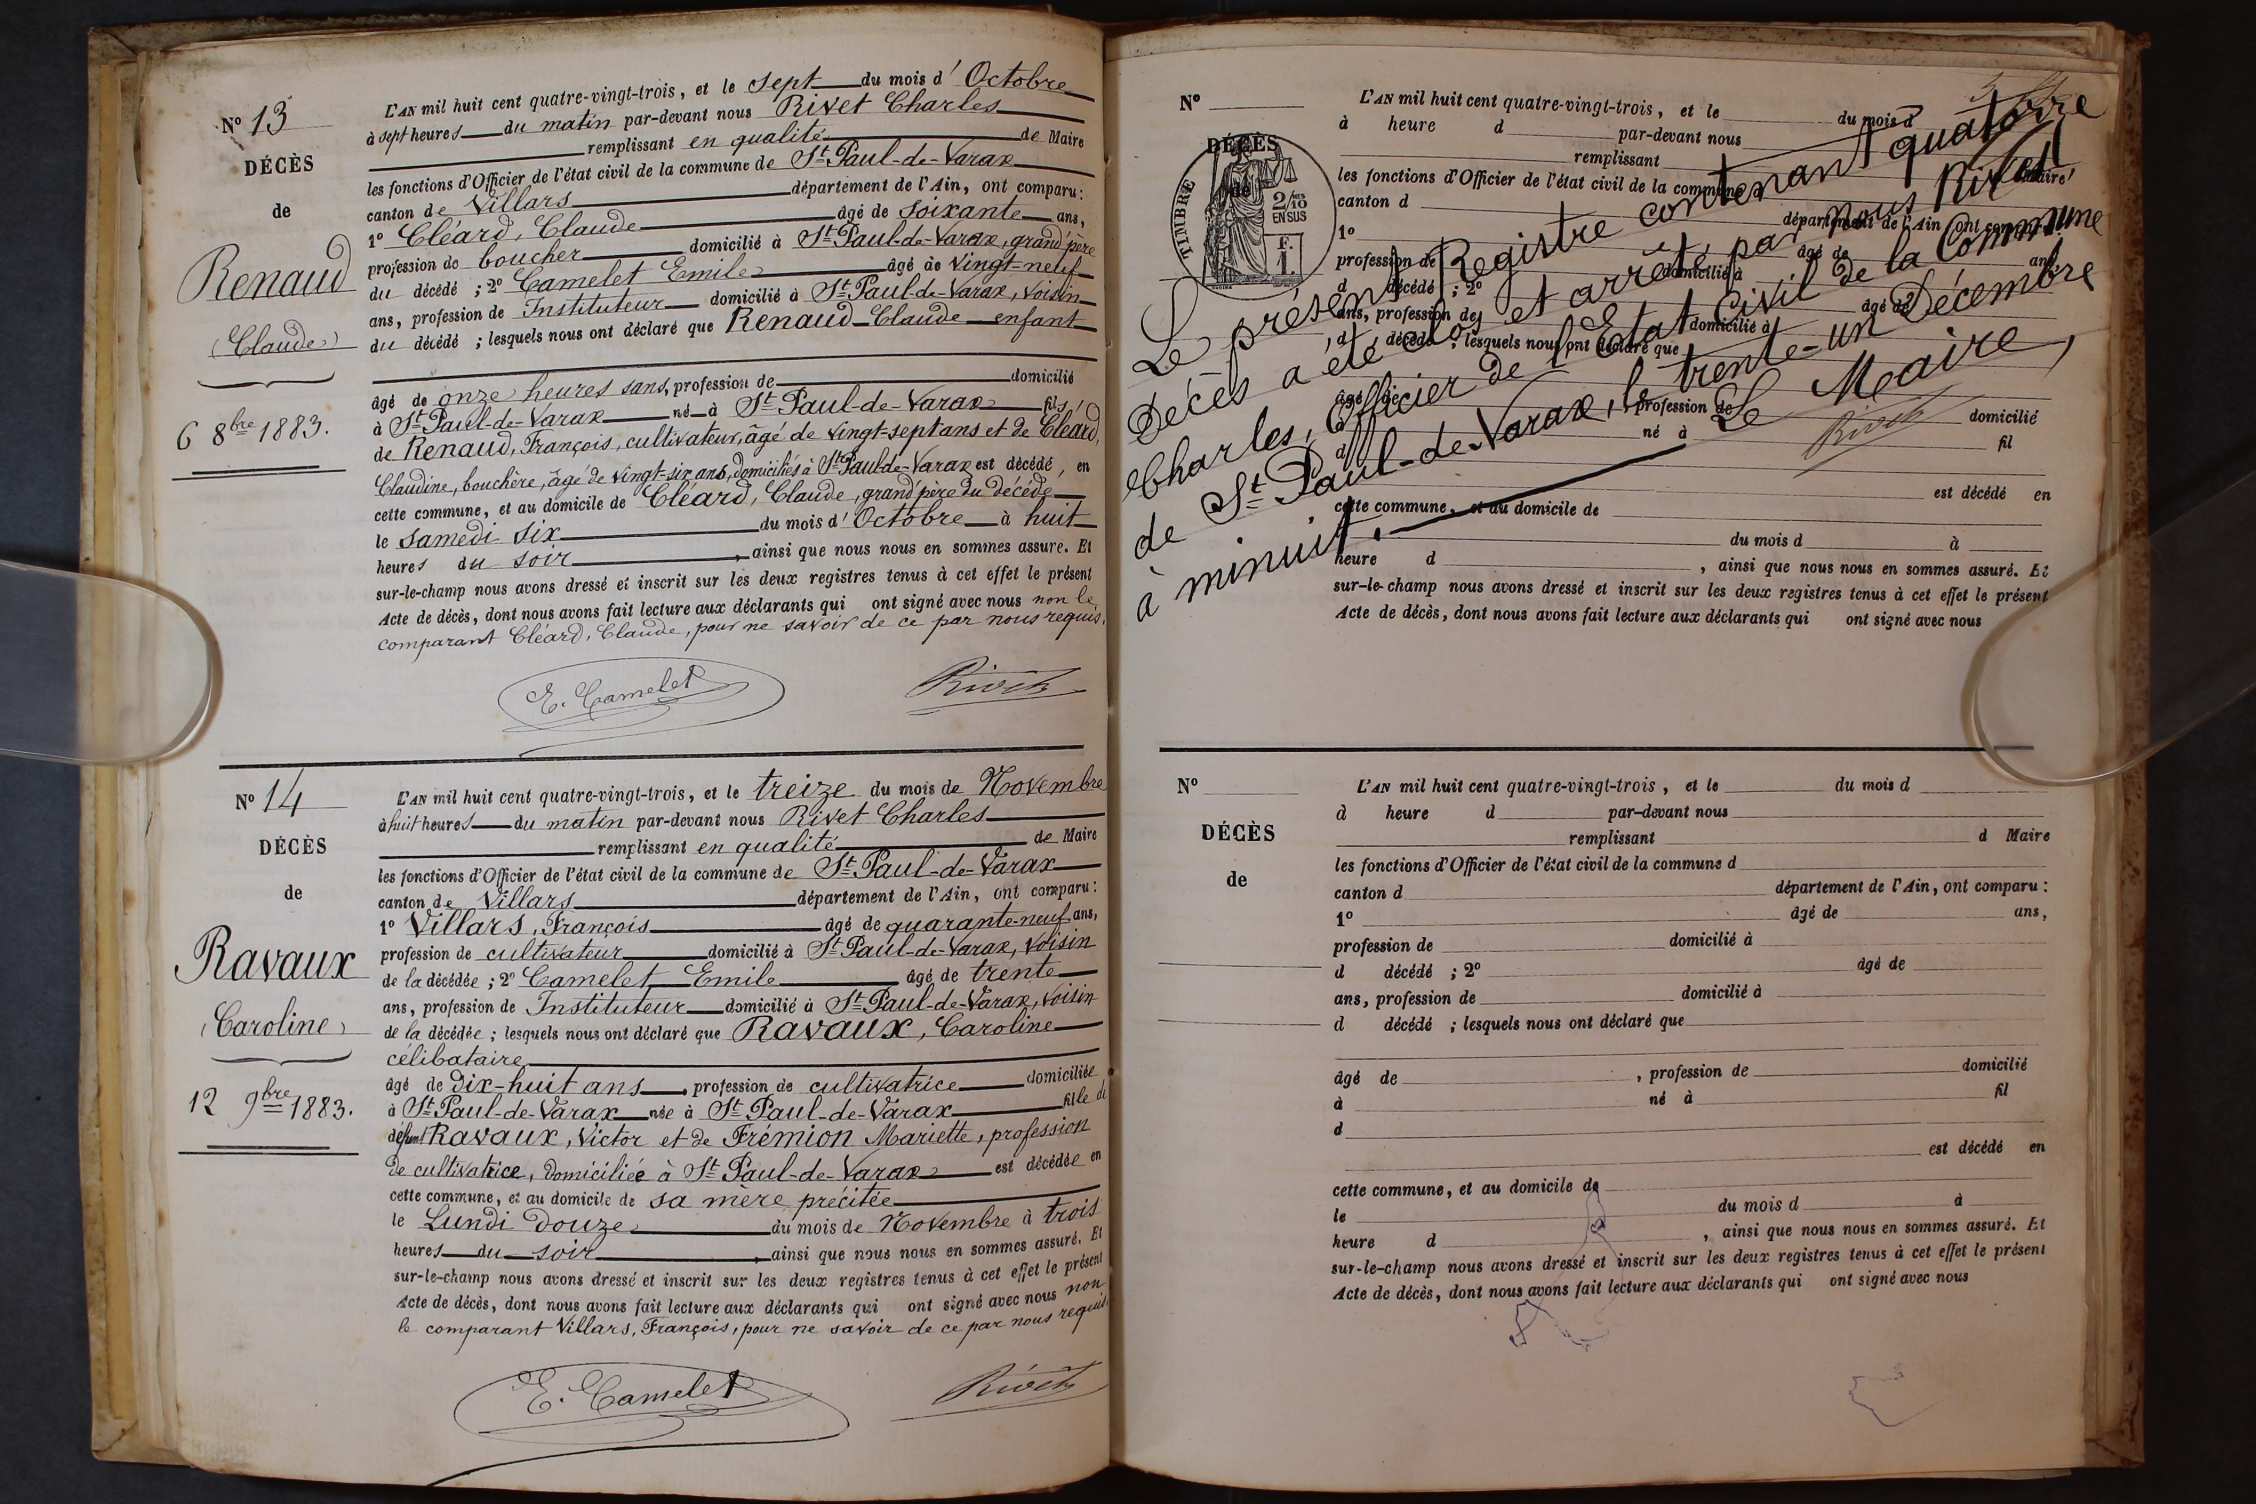 N° 13
DÉCÈS
de
Renaud
(Claude)
6 8bre 1883.
L'AN mil huit cent quatre-vingt-trois, et le sept du mois d'Octobre
à sept heures du matin par-devant nous Rivet Charles
remplissant en qualité de Maire
les fonctions d'Officier de l'état civil de la commune de St Paul-de-Varax
canton de Villars département de l'Ain, ont comparu :
1° Cléard, Claude âgé de soixante ans,
profession de boucher domicilié à St Paul-de-Varax, grand'père
du décédé ; 2° Camelet Emile âgé de vingt-neuf
ans, profession de Instituteur domicilié à St Paul-de-Varax, voisin
du décédé ; lesquels nous ont déclaré que Renaud Claude enfant
âgé de onze heures sans, profession de domicilié
à St Paul-de-Varax né à St Paul-de-Varax fils,
de Renaud, François, cultivateur, âgé de vingt-sept ans et de Cléard,
Claudine, bouchère, âgé de vingt-six ans, domiciliés à St Paul-de-Varax est décédé, en
cette commune, et au domicile de Cléard, Claude, grand'père du décédé
le samedi six du mois d'Octobre à huit
heures du soir, ainsi que nous nous en sommes assuré. Et
sur-le-champ nous avons dressé et inscrit sur les deux registres tenus à cet effet le présent
Acte de décès, dont nous avons fait lecture aux déclarants qui ont signé avec nous non le
comparant Cléard, Claude, pour ne savoir de ce par nous requis.
E. Camelet Rivet
N° 14
DÉCÈS
de
Ravaux
(Caroline)
12 9bre 1883.
L'AN mil huit cent quatre-vingt-trois, et le treize du mois de Novembre
à huit heures du matin par-devant nous Rivet Charles
remplissant en qualité de Maire
les fonctions d'Officier de l'état civil de la commune de St Paul-de-Varax
canton de Villars département de l'Ain, ont comparu :
1° Villars, François âgé de quarante-neuf ans,
profession de cultivateur domicilié à St Paul-de-Varax, voisin
de la décédée ; 2° Camelet Emile âgé de trente
ans, profession de Instituteur domicilié à St Paul-de-Varax, voisin
de la décédée ; lesquels nous ont déclaré que Ravaux, Caroline
célibataire
âgé de dix-huit ans, profession de cultivatrice domiciliée
à St Paul-de-Varax née à St Paul-de-Varax fille de
défunt Ravaux, Victor et de Frémion Mariette, profession
de cultivatrice, domiciliée à St Paul-de-Varax est décédée en
cette commune, et au domicile de sa mère précitée
le Lundi douze du mois de Novembre à trois
heures du soir, ainsi que nous nous en sommes assuré. Et
sur-le-champ nous avons dressé et inscrit sur les deux registres tenus à cet effet le présent
Acte de décès, dont nous avons fait lecture aux déclarants qui ont signé avec nous non
le comparant Villars, François, pour ne savoir de ce par nous requis.
E. Camelet Rivet
N°
DÉCÈS
de
TIMBRE
2/10 EN SUS
F.
1.
L'AN mil huit cent quatre-vingt-trois, et le du mois d
à heure d par-devant nous
remplissant d Maire
les fonctions d'Officier de l'état civil de la commune d
canton d département de l'Ain, ont comparu :
1° âgé de ans,
profession de domicilié à
d décédé ; 2° âgé de
ans, profession de domicilié à
d décédé ; lesquels nous ont déclaré que
âgé de , profession de domicilié
à né à fil
d
est décédé en
cette commune, et au domicile de
du mois d à
heure d , ainsi que nous nous en sommes assuré. Et
sur-le-champ nous avons dressé et inscrit sur les deux registres tenus à cet effet le présent
Acte de décès, dont nous avons fait lecture aux déclarants qui ont signé avec nous
Le présent Registre contenant quatorze
Décès a été clos et arrêté par nous Rivet
Charles, Officier de l'Etat Civil de la Commune
de St Paul-de-Varax, le trente-un Décembre
à minuit. Le Maire,
Rivet
N°
DÉCÈS
de
L'AN mil huit cent quatre-vingt-trois, et le du mois d
à heure d par-devant nous
remplissant d Maire
les fonctions d'Officier de l'état civil de la commune d
canton d département de l'Ain, ont comparu :
1° âgé de ans,
profession de domicilié à
d décédé ; 2° âgé de
ans, profession de domicilié à
d décédé ; lesquels nous ont déclaré que
âgé de , profession de domicilié
à né à fil
d
est décédé en
cette commune, et au domicile de
le du mois d à
heure d , ainsi que nous nous en sommes assuré. Et
sur-le-champ nous avons dressé et inscrit sur les deux registres tenus à cet effet le présent
Acte de décès, dont nous avons fait lecture aux déclarants qui ont signé avec nous